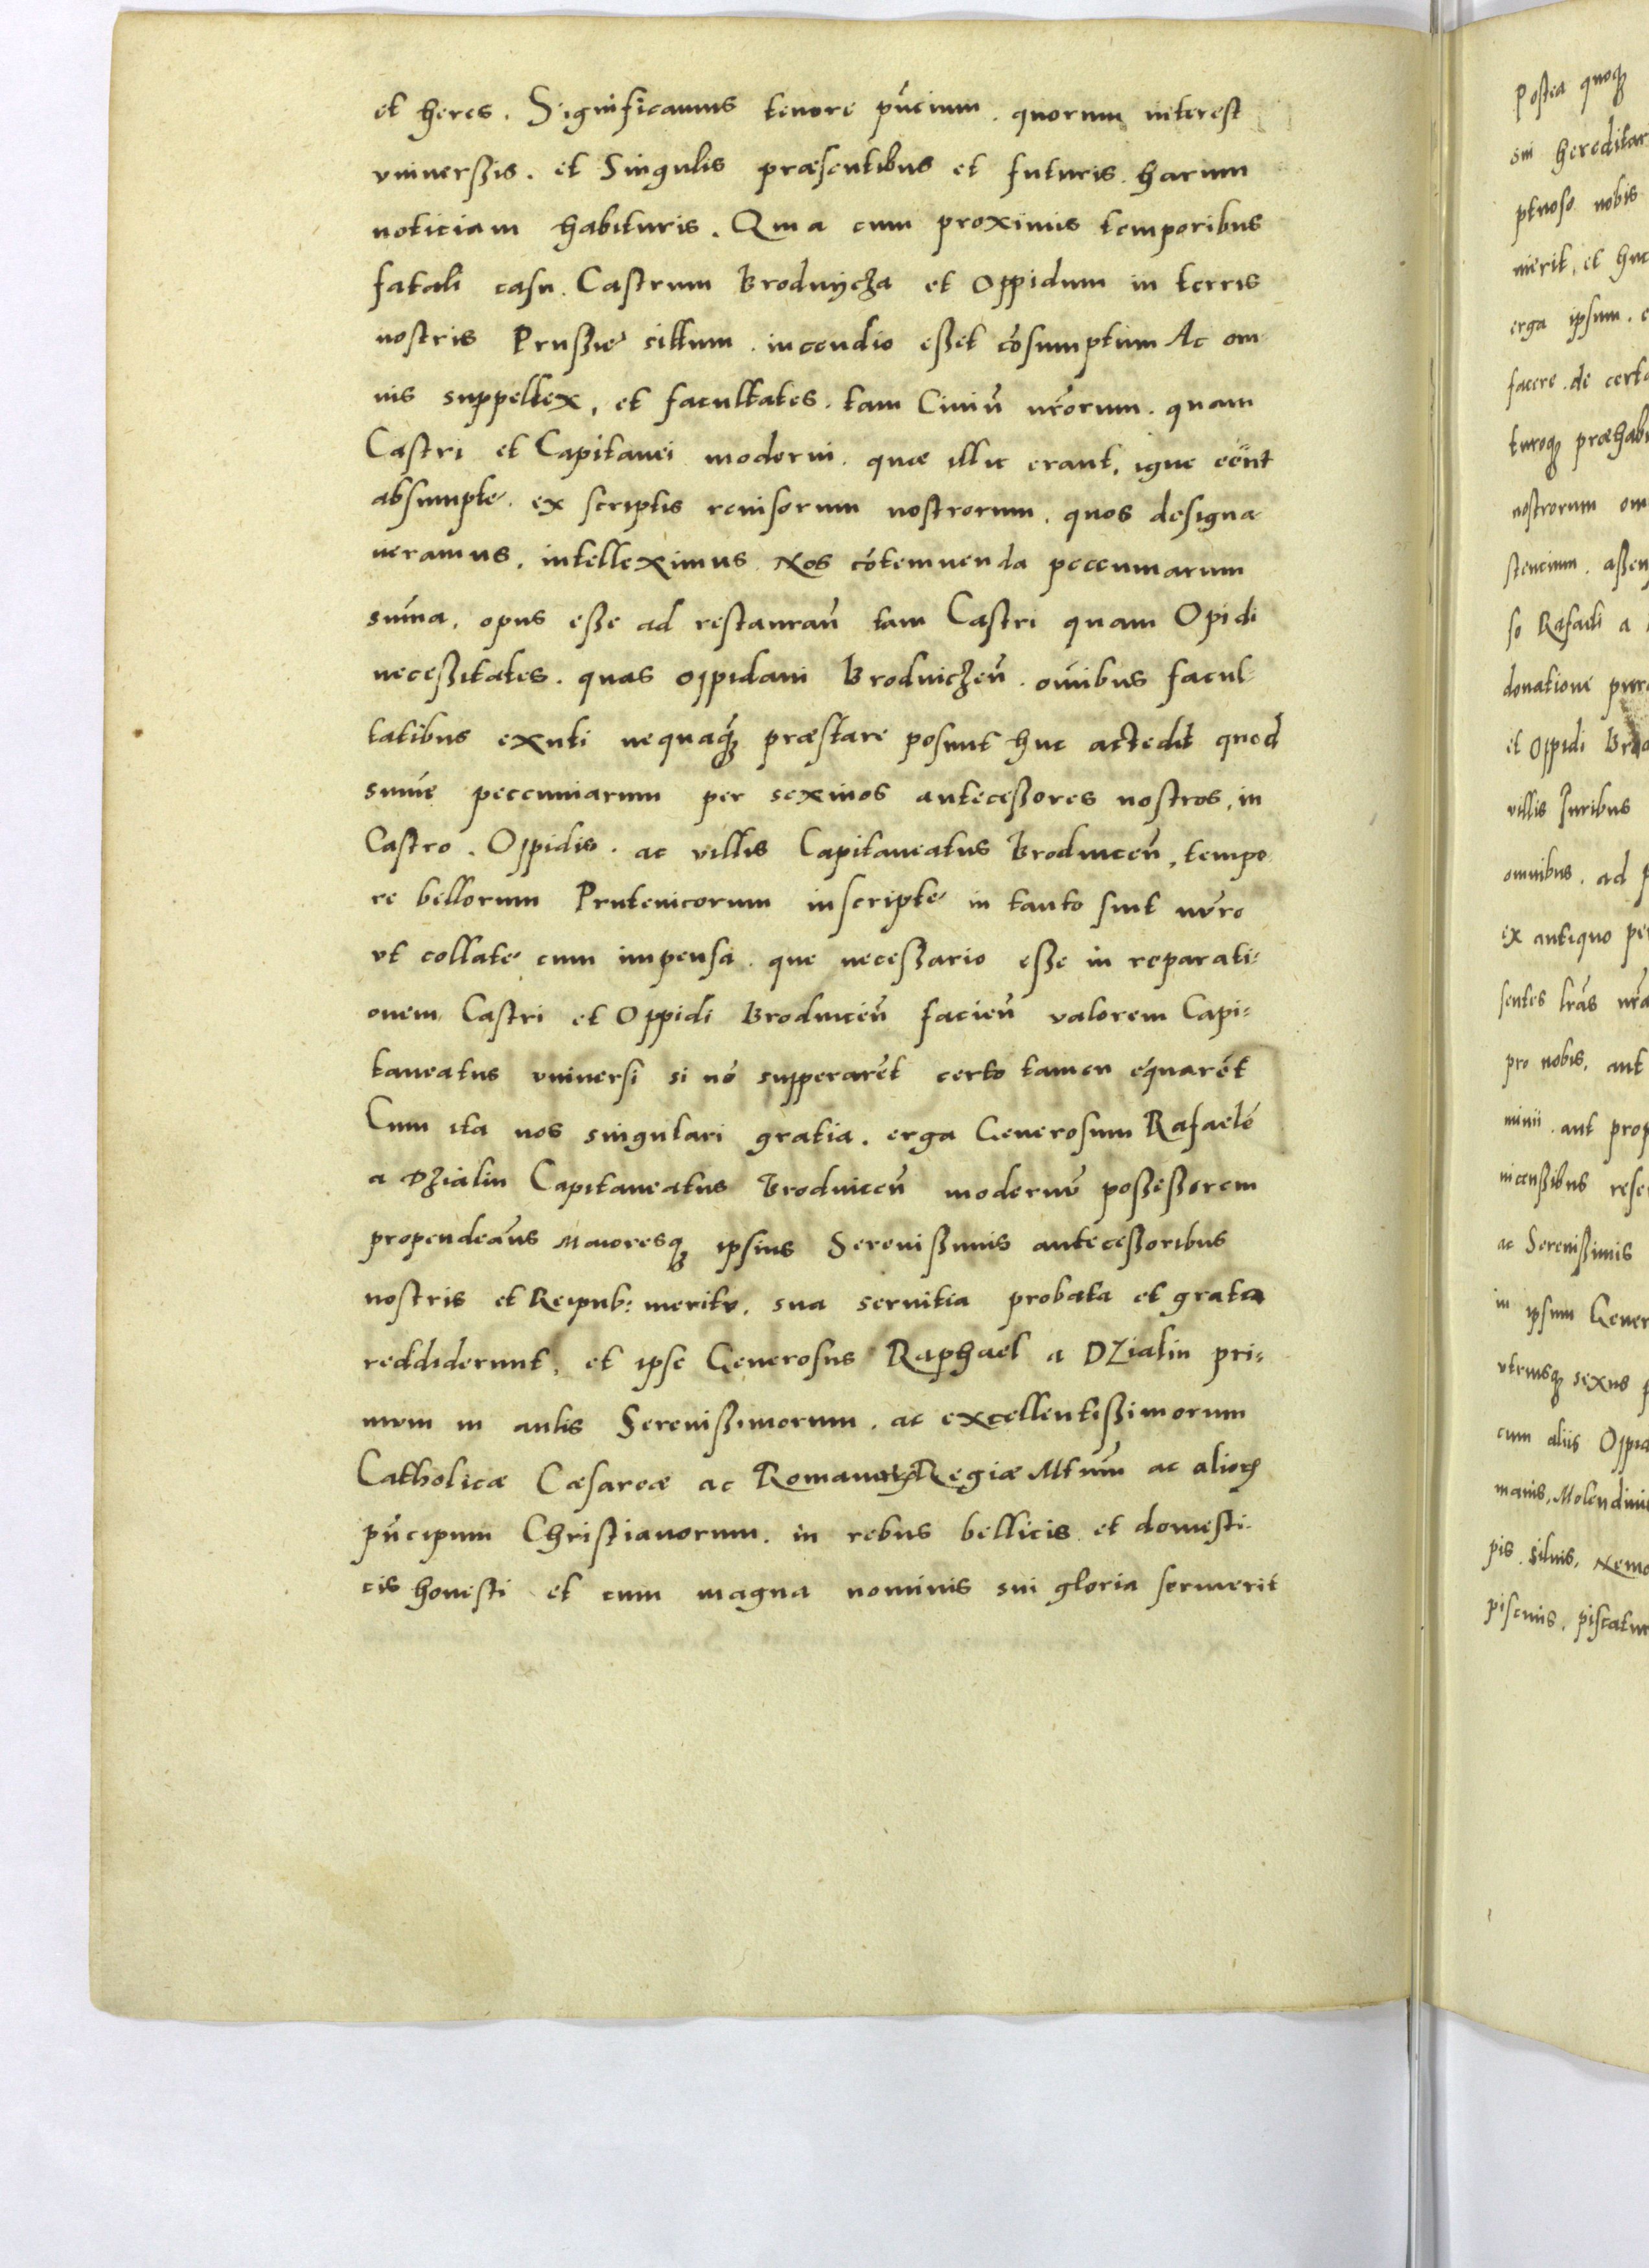 et heres. Significamus tenore pñcium. quorum interest
vniuerßis. et Singulis præsentibus et futuris. harum
noticiam habituris. Quia cum proximis temporibus
fatali casu. Castrum Brodnycza et Oppidum in terris
nostris Prußie sittum. incendio eßet cõsumptum Ac om
nis suppeltex, et facultates. tam Ciuiũ nrõrum. quam
Castri et Capitanei moderni. quæ illic erant, igne eẽnt
absumpte. ex scriptis reuisorum nostrorum. quos designa
ueramus, intelleximus Nos cõtemnenda peccuniarum
sum̃a, opus eße ad restaurañ tam Castri quam Opidi
neceßitates. quas oppidani Brodniczeñ. om̃ibus facul-
tatibus exuti nequaq̃ præstare posunt huc actedit quod
sum̃e peccuniarum per sexinos anteceßores nostros, in
Castro. Oppidis. ac villis Capitaneatus Brodniceñ, tempo
re bellorum Prutenicorum inscripte in tanto sint nũro
vt collate cum impensa. que neceßario eße in reparati-
onem Castri et Oppidi Brodniceñ facieñ valorem Capi-
taneatus vniuersi si nõ supperarẽt certo tamen equarẽt
Cum ita nos singulari gratia. erga Generosum Rafaelẽ
a Dzialin Capitaneatus Brodniceñ modernũ poßeßorem
propendeam̃us Maioresq; ipsius Serenißimis anteceßoribus
nostris et Reipub: merito. sua seruitia probata et grata
reddiderunt, et ipse Generosus Raphael a DZialin pri-
mum in aulis Serenißimorum. ac excellentißimorum
Catholicæ Cæsareæ ac Regiæ Mtum̃ ac alioꝝ
pñcipum Christianorum. in rebus bellicis et domesti-
cis honesti et cum magna nominis sui gloria seruuerit
Postea quoq;
sui hereditar
ptuoso nobis
uierit, et huc
erga ipsum. e
facere. de certa
turoq; præhabi
nostrorum om
stencium. aßen
so Rafaeli a
donatione pur
et Oppidi Bro
villis Iuribus
omnibus. ad p
ex antiquo pe
sentes lrãs nrã
pro nobis, aut
minii. aut prop
nicenßibus rese
ac Serenißimis
in ipsum Gener
vtriusq; sexus p
cum aliis Oppid
manis, Molendini
pis. Siluis, Nemo
piscinis, piscatur